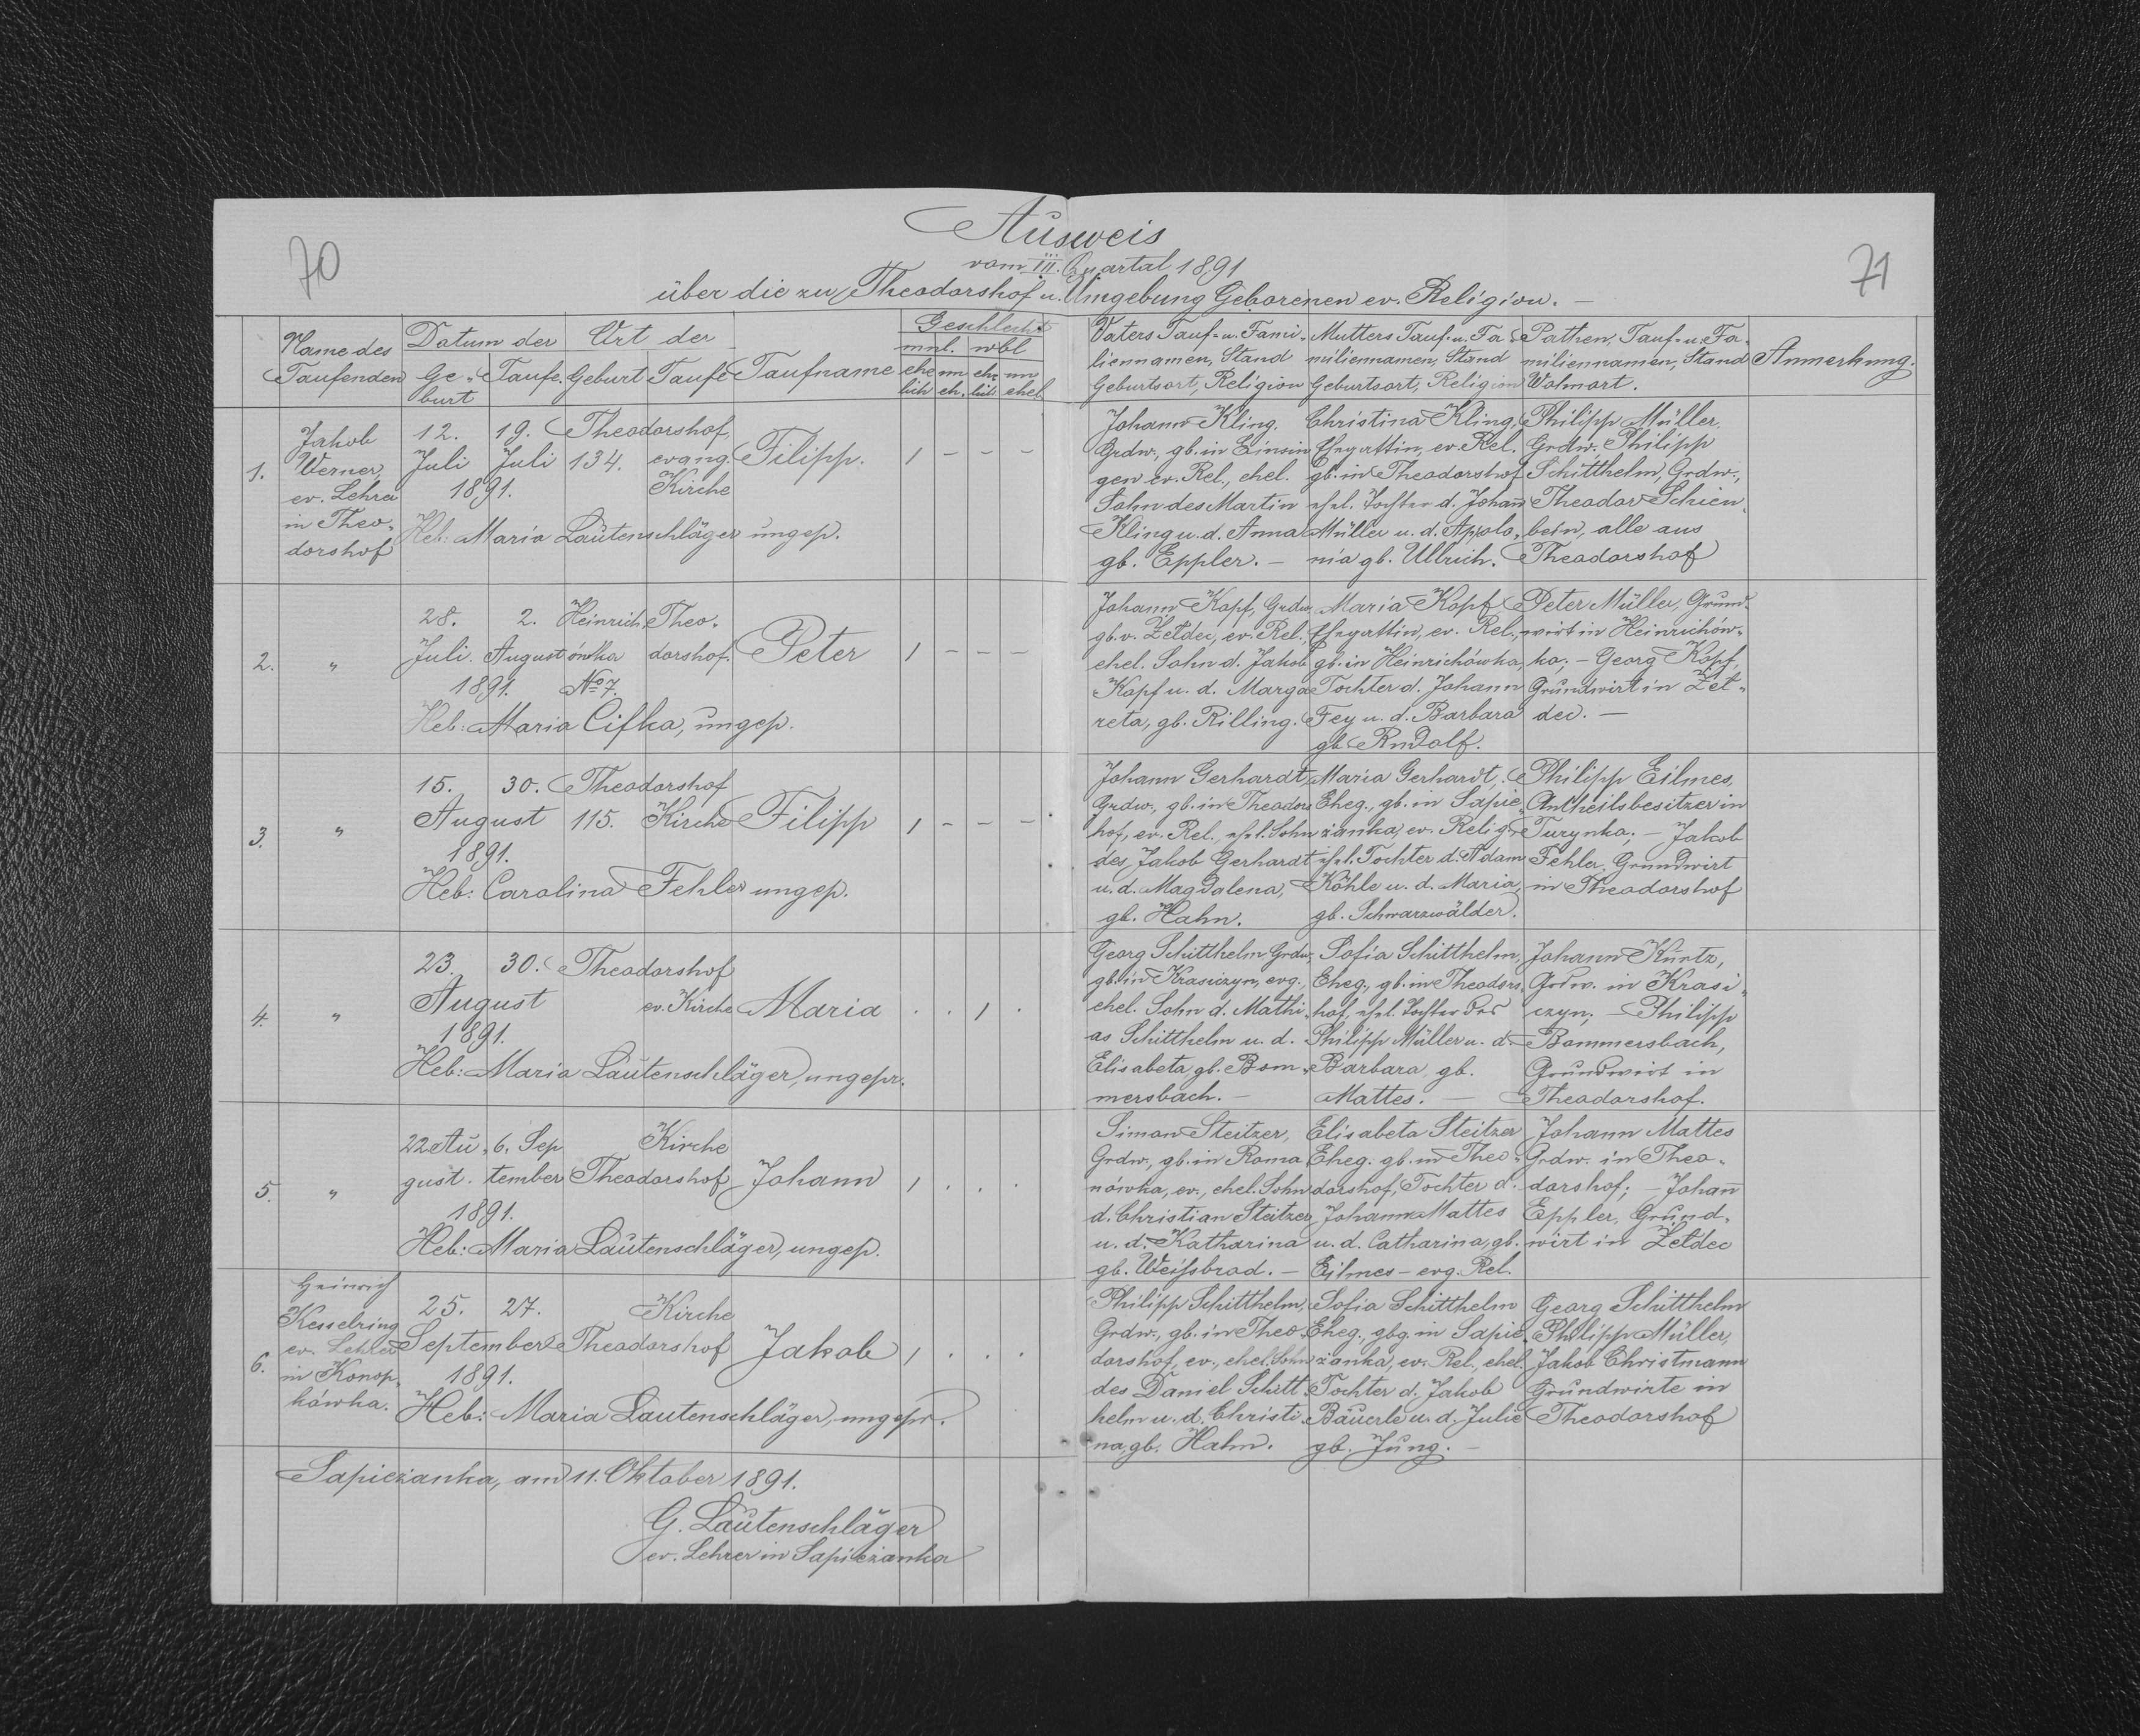 70
71
Ausweis
vom III. Quartal 1891
über die zu Theodorshof u. Umgebung Geborenen ev. Religion. —
Name des Taufenden
Datum der
Geburt
Taufe
Ort der
Geburt
Taufe
Taufname
Geschlecht
mnl.
wbl
ehelich
un eh.
ehelich
un ehel
Vaters Tauf- u. Fami-
liennamen, Stand
Geburtsort, Religion
Mutters Tauf- u. Fa-
miliennamen, Stand
Geburtsort, Religion
Pathen, Tauf- u. Fa-
miliennamen, Stand
Wohnort.
Anmerkung.
1.
Jakob
Werner,
ev. Lehrer
in Theo-
dorshof
12. 19. Theodorshof
Juli Juli 134. evang. Filipp. 1 - - -
1891. Kirche
Heb: Maria Lautenschläger ungep.
Johann Kling,
Grdw., gb. in Einsin
gen ev. Rel., ehel.
Sohn des Martin
Kling u. d. Anna
gb. Eppler. —
Christina Kling,
Ehegattin, ev. Rel.
gb. in Theodorshof
ehel. Tochter d. Johann
Müller u. d. Apolo-
nia gb. Ullrich.
Philipp Müller,
Grdw. Philipp
Schitthelm, Grdw.,
Theodor Schien-
bein, alle aus
Theodorshof
2.
"
28. 2. Heinrich Theo-
Juli. August ówka dorshof. Peter 1 - - -
1891. No 7.
Heb: Maria Cifka, ungep.
Johann Kopf, Grdw.
gb. v. Żeldec, ev. Rel.,
ehel. Sohn d. Jakob
Kopf u. d. Marga
reta, gb. Rilling.
Maria Kopf,
Ehegattin, ev. Rel.,
gb. in Heinrichówka,
Tochter d. Johann
Fey u. d. Barbara
gb. Rudolf.
Peter Müller, Grund-
wirt in Heinrichów-
ka; — Georg Kopf,
Grundwirt in Żel-
dec. —
3.
"
15. 30. Theodorshof
August 115. Kirche Filipp 1 - - -
1891.
Heb: Carolina Fehler ungep.
Johann Gerhardt,
Grdw., gb. in Theodors
hof, ev. Rel. ehel. Sohn
des Jakob Gerhardt
u. d. Magdalena,
gb. Hahn.
Maria Gerhardt,
Eheg., gb. in Sapie-
żanka, ev. Relig.
ehel. Tochter d. Adam
Köhle u. d. Maria,
gb. Schwarzwälder.
Philipp Eilmes,
Antheilsbesitzer in
Turynka; — Jakob
Fehler, Grundwirt
in Theodorshof
4.
"
23. 30. Theodorshof
August ev. Kirche Maria . . 1 .
1891.
Heb: Maria Lautenschläger, ungepr.
Georg Schitthelm, Grdw,
gb. in Krasiczyn, evg.,
ehel. Sohn d. Mathi-
as Schitthelm u. d.
Elisabeta, gb. Bom-
mersbach. —
Sofia Schitthelm,
Eheg., gb. in Theodors
hof, ehel. Tochter des
Philipp Müller u. d.
Barbara, gb.
Mattes. —
Johann Kurtz,
Grdw. in Krasi-
czyn; — Philipp
Bommersbach,
Grundwirt in
Theodorshof.
5.
"
22 Au- 6. Sep Kirche
gust. tember Theodorshof Johann 1 . . .
1891.
Heb: Maria Lautenschläger, ungep.
Simon Steitzer,
Grdw., gb. in Roma
nówka, ev., ehel. Sohn
d. Christian Steitzer
u. d. Katharina
gb. Weissbrod. —
Elisabeta Steitzer
Eheg. gb. in Theo-
dorshof, Tochter d.
Johann Mattes
u. d. Catharina, gb.
Eilmes — evg. Rel.
Johann Mattes
Grdw. in Theo-
dorshof; — Johann
Eppler, Grund-
wirt in Żeldec
6.
Heinrich
Kesselring
ev. Lehrer
in Konop-
kówka.
25. 27. Kirche
September Theodorshof Jakob 1 . . .
1891.
Heb: Maria Lautenschläger, ungepr.
Philipp Schitthelm,
Grdw., gb. in Theo-
dorshof, ev., ehel. Sohn
des Daniel Schitt-
helm u. d. Christi-
na, gb. Hahn.
Sofia Schitthelm
Eheg., gbg. in Sapie-
żanka, ev. Rel., ehel.
Tochter d. Jakob
Bäuerle u. d. Julie
gb. Jung. —
Georg Schitthelm
Philipp Müller,
Jakob Christmann
Grundwirte in
Theodorshof
Sapieżanka, am 11. Oktober 1891.
G. Lautenschläger
ev. Lehrer in Sapieżanka